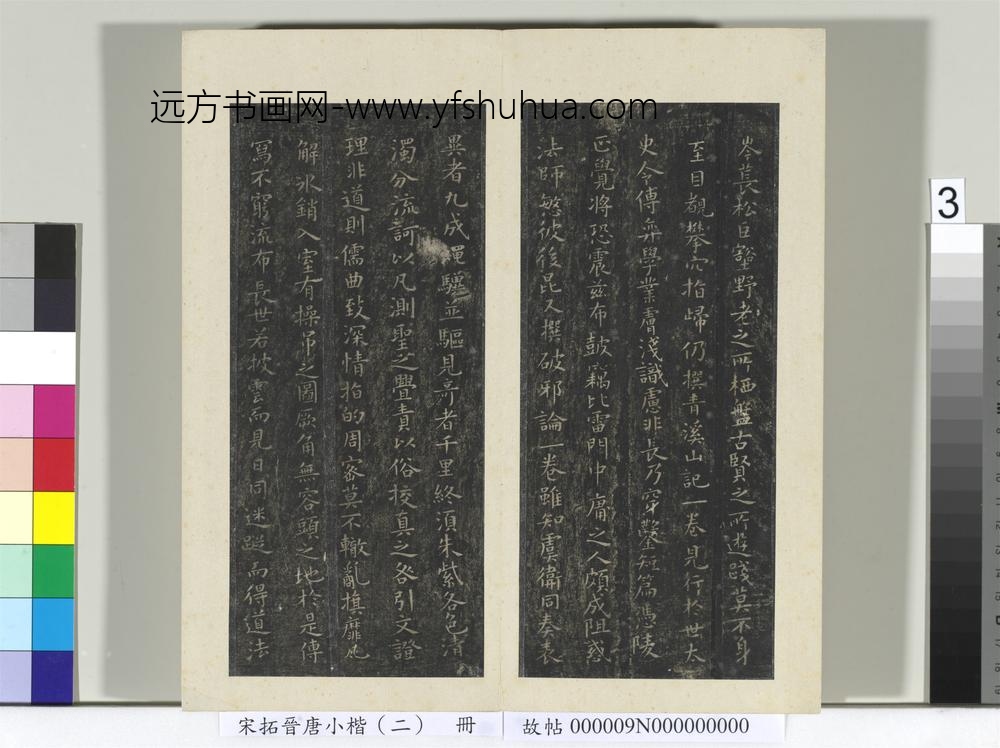 远方书画网-www.yfshuhua.com
岑萇松巨壑野老之所栖盤古賢之所遊踐莫不身
至目覩攀穴指歸仍撰青溪山記一卷見行於世太
史令傅弈學業膚淺識慮非長乃穿鑿短篇憑陵
正覺將恐震茲布鼓竊比雷門中庸之人頗成阻惑
法師愍彼後昆又撰破邪論一卷雖知虞衛同奏表
異者九成蠅驥並驅見奇者千里終須朱紫各色清
濁分流訶以凡測聖之舋責以俗挍真之咎引文證
理非道則儒曲致深情指的周密莫不轍亂旗靡瓦
解冰銷入室有操吊之圖厥角無容頭之地於是傳
寫不窮流布長世若披雲而見日同迷蹤而得道法
宋拓晉唐小楷（二） 冊
故帖 000009N000000000
3